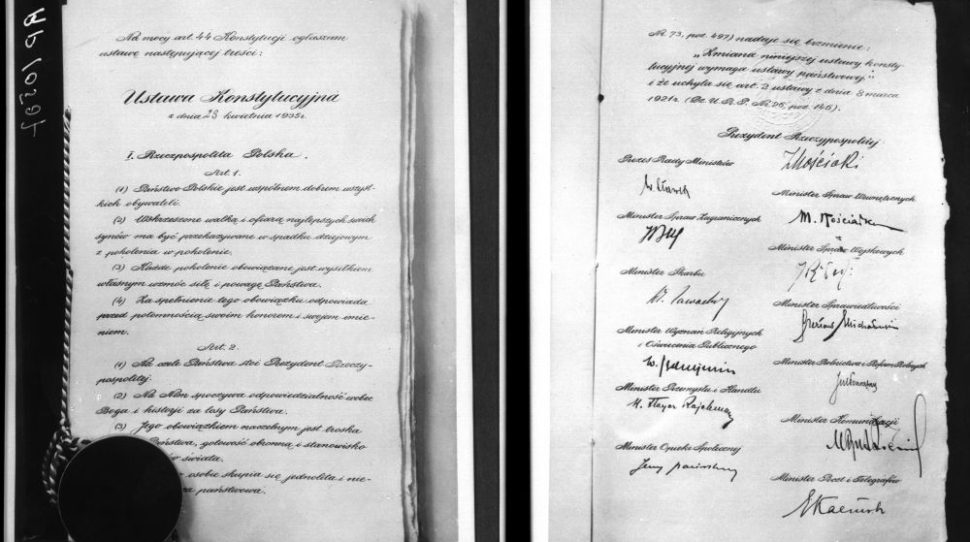 Na mocy art. 44 Konstytucji ogłaszam
ustawę następującej treści:
Ustawa Konstytucyjna
z dnia 23 kwietnia 1935 r.
I. Rzeczpospolita Polska.
Art. 1.
(1) Państwo Polskie jest wspólnem dobrem wszyst-
kich obywateli.
(2) Wskrzeszone walką i ofiarą najlepszych swoich
synów ma być przekazywane w spadku dziejowym
z pokolenia w pokolenie.
(3) Każde pokolenie obowiązane jest wysiłkiem
własnym wzmóc siłę i powagę Państwa.
(4) Za spełnienie tego obowiązku odpowiada
przed potomnością swoim honorem i swojem imie-
niem.
Art. 2.
(1) Na czele Państwa stoi Prezydent Rzeczy-
pospolitej.
(2) Na Nim spoczywa odpowiedzialność wobec
Boga i historji za losy Państwa.
(3) Jego obowiązkiem naczelnym jest troska
Państwa, gotowość obronną i stanowisko
świata.
osobie skupia się jednolita i nie-
państwowa.
Nr. 73, poz. 497) nadaje się brzmienie:
„Zmiana niniejszej ustawy konsty
tucyjnej wymaga ustawy państwowej"
i że uchyla się art. 3 ustawy z dnia 8 marca
1921 r. (Dz. U. R. P. Nr. 25, poz. 145).
Prezydent Rzeczypospolitej
I Mościcki
Prezes Rady Ministrów
W. Sławek
Minister Spraw Wewnętrznych
Minister Spraw Zagranicznych
Minister Spraw Wojskowych
Minister Skarbu
Minister Sprawiedliwości
Minister Wyznań Religijnych
i Oświecenia Publicznego
Minister Rolnictwa i Reform Rolnych
Minister Przemysłu i Handlu
H. Floyar Rajchman
Minister Komunikacji
Minister Opieki Społecznej
Minister Poczt i Telegrafów